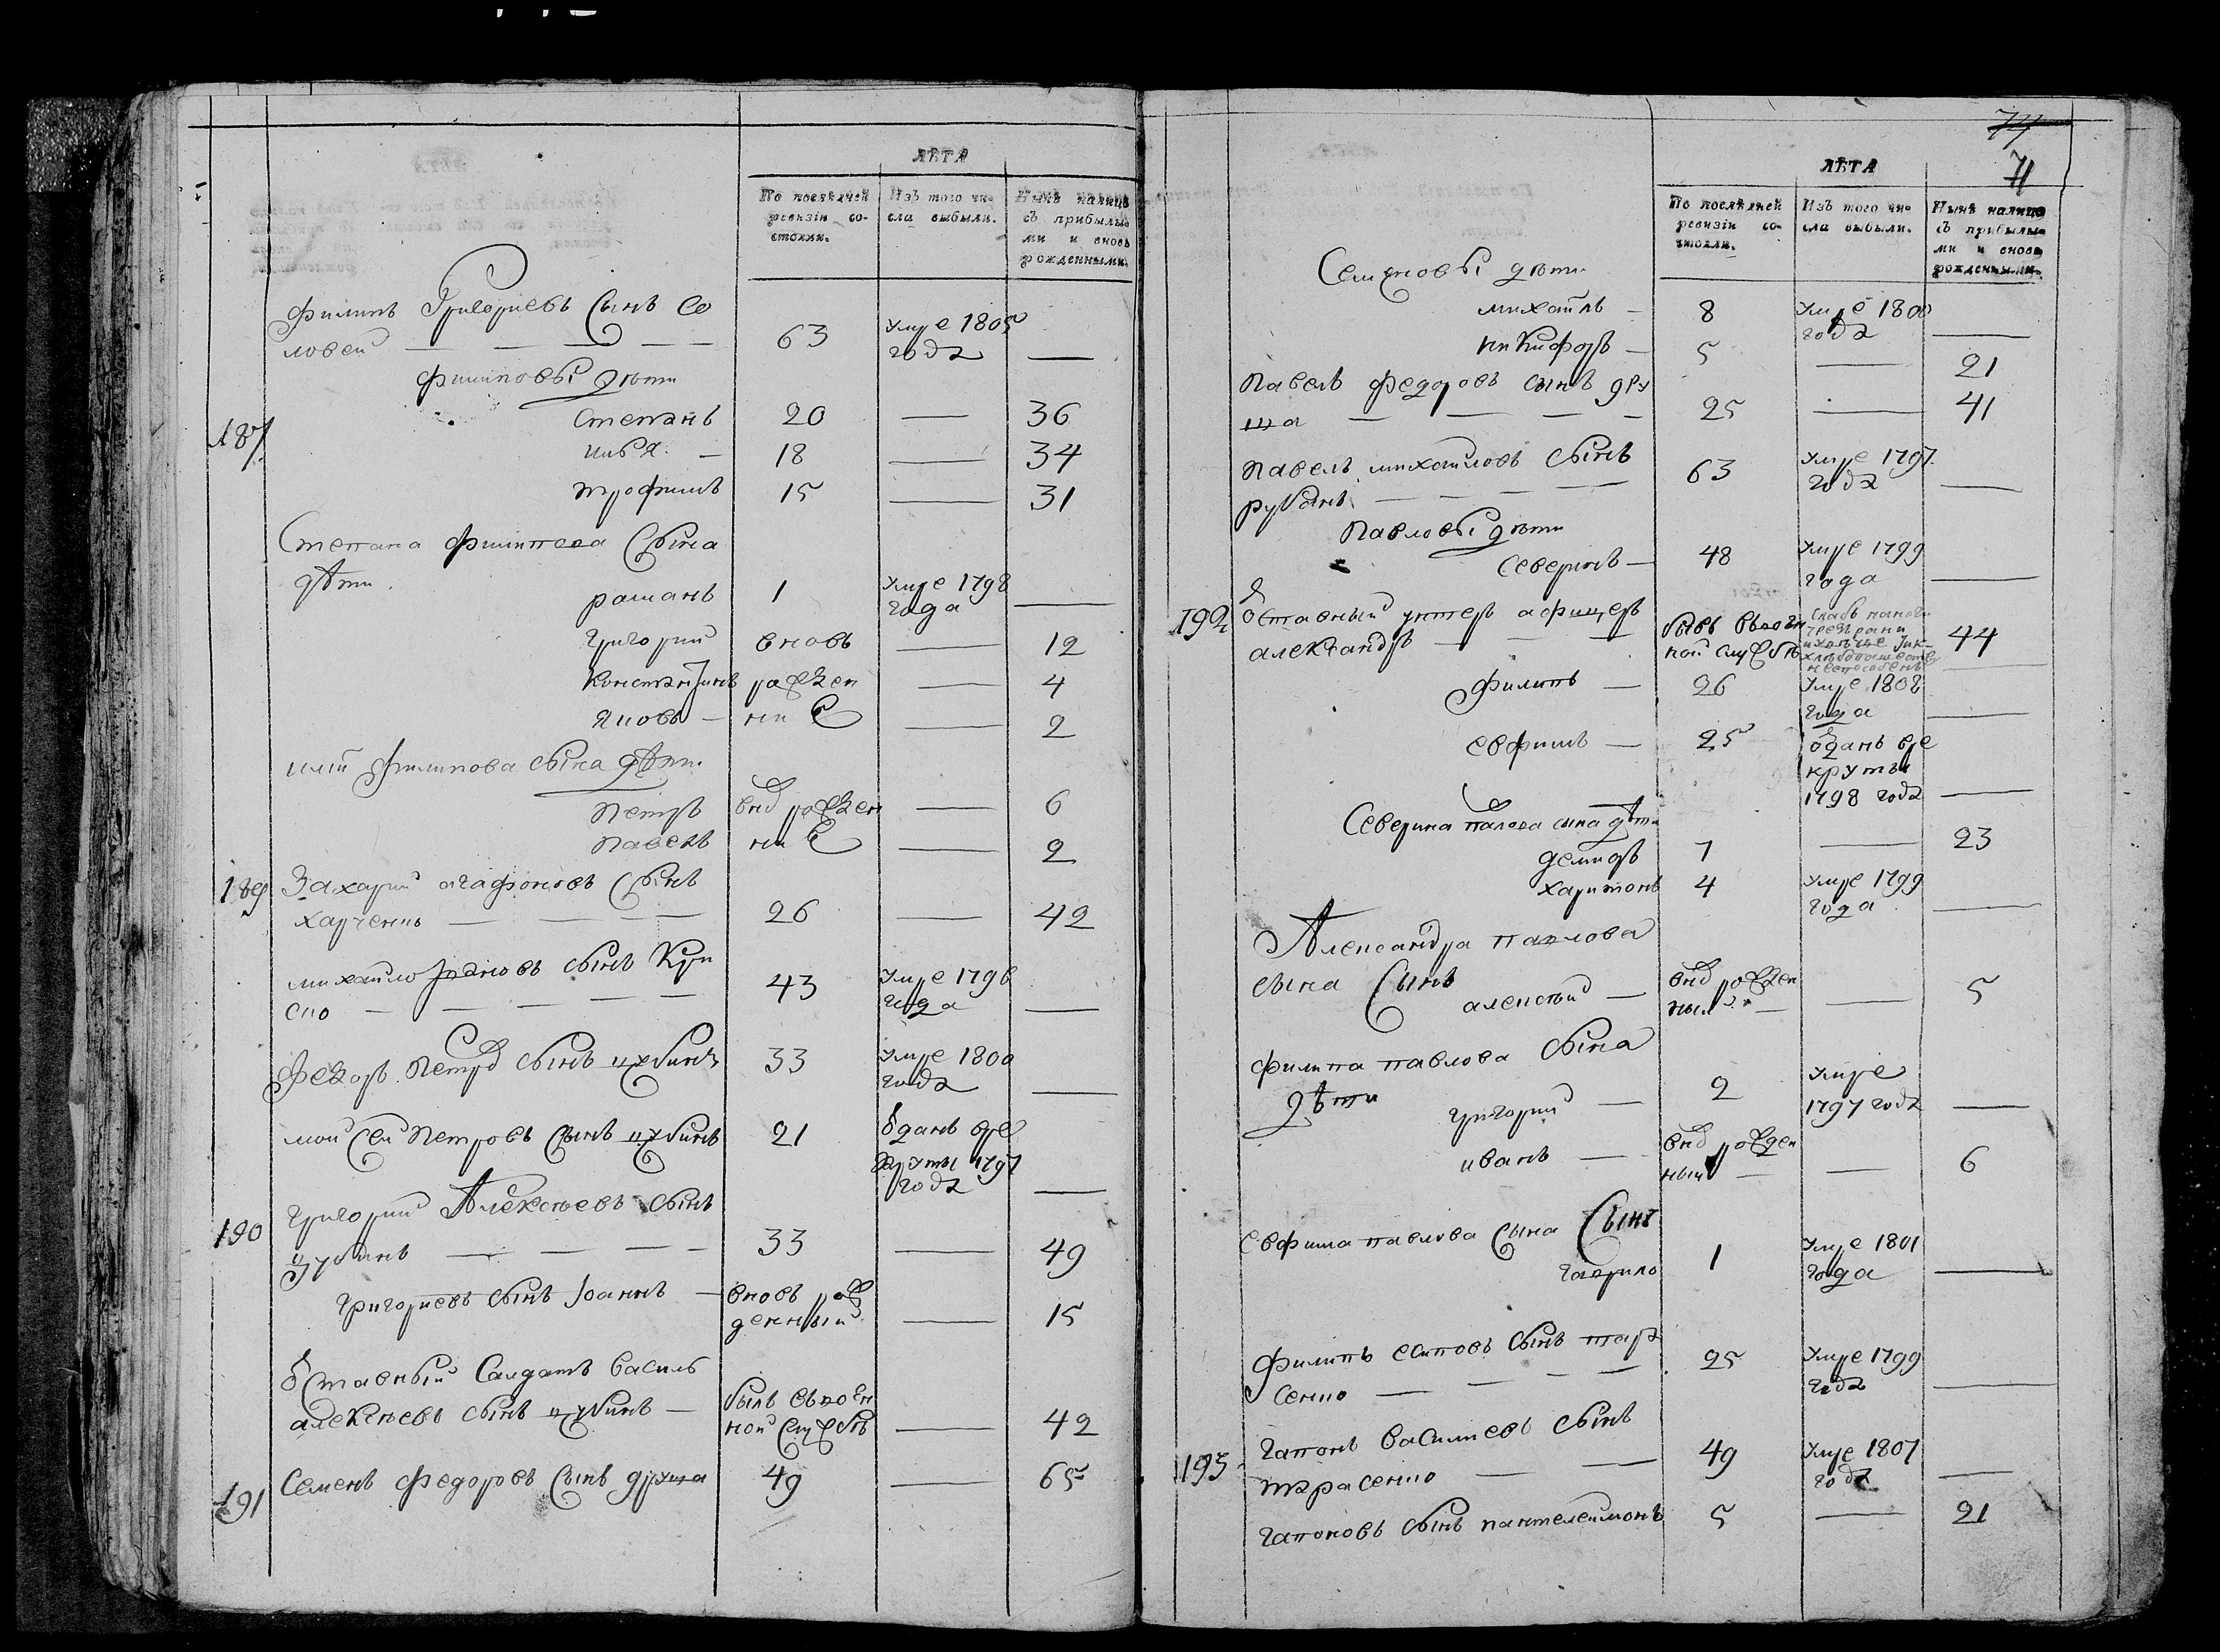 ЛѢТА
По послѣдней ревизіи со-стояли.
Изъ того чи-сла выбыли.
Нынѣ налицо съ прибылы-ми и вновь рожденными.
филипъ Григориевъ Сынъ Со
ловей — 63 умре 1805 года —
филиповы дѣти
187
степанъ 20 — 36
илья — 18 — 34
трофимъ 15 — 31
Степана филипова Сына
дѣти
романъ 1 умре 1798 года —
григорий вновь — 12
константинъ рожден — 4
яковъ — ние — 2
илїи филипова сына дѣти
петръ внов рожден — 6
павелъ ние — 2
189 Захарий агафоновъ Сынъ
харченко — 26 — 42
михайло Івановъ сынъ Кри
ско — 43 умре 1796 года —
федоръ Петров сынъ цубинъ 33 умре 1800 года —
моисей Петровъ Сынъ цубинъ 21 отданъ вре
круты 1797
года —
190 григорий Алексѣевъ сынъ
цубинъ — 33 — 49
григориевъ сынъ Іоаннъ — вновь рож
денный — 15
отставный Салдатъ василь
алексѣевъ сынъ цубинъ — былъ въ воен
ной службѣ — 42
191 Семенъ федоровъ Сынъ друша 49 — 65
71
ЛѢТА
По послѣдней ревизіи со-стояли.
Изъ того чи-сла выбыли.
Нынѣ налицо съ прибылы-ми и вновь рожденными.
Семеновы дѣти
михайлъ — 8 умре 1800 года —
никифоръ — 5 — 21
павелъ федоровъ сынъ дру
ша — 25 — 41
павелъ михайловъ сынъ
рубанъ — 63 умре 1797 года —
Павловы дѣти
северинъ — 48 умре 1799 года —
192 отставный унтеръ афицеръ
александръ — бывъ въ воен
ной службѣ 44
филипъ — 26 умре 1808 года —
евфимъ — 25 отданъ вре
круты
1798 года —
Северина павлова сына дѣти
демидъ 7 — 23
харитонъ 4 умре 1799 года —
Александра павлова
сына Сынъ
алексѣй — внов рожден
ный — 5
филипа павлова сына
дѣти
григорий — 2 умре
1797 года —
иванъ — внов рожден
ный — 6
евфима павлова Сына Сынъ
гаврило 1 умре 1801 года —
филипъ есиповъ сынъ тара
сенко — 25 умре 1799 года —
193 гапонъ василиевъ сынъ
тарасенко — 49 умре 1807 года —
гапоновъ сынъ пантелеймонъ 5 — 21